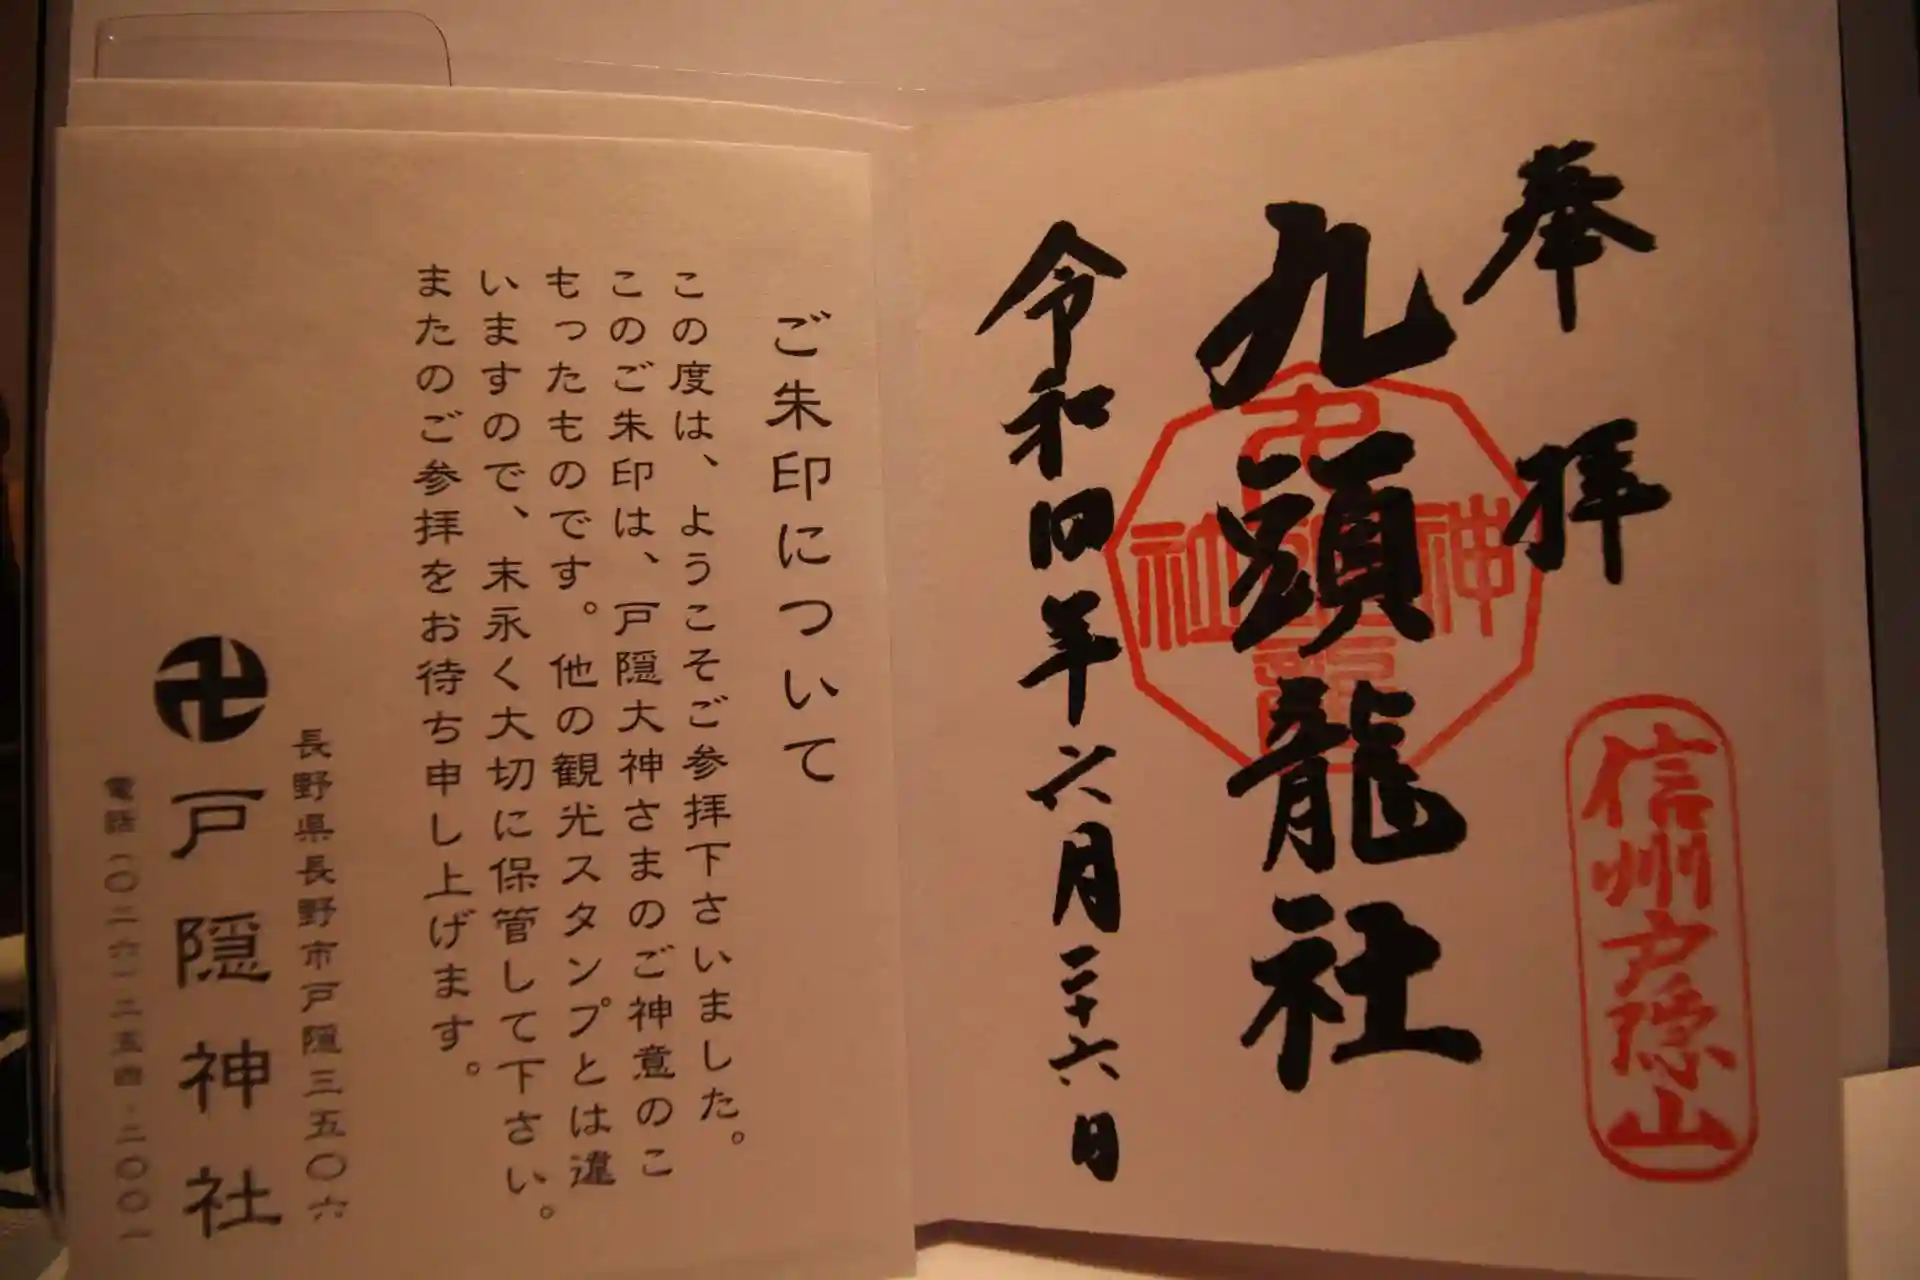 奉拝
信州戸隠山
九頭龍社
令和四年六月二十六日
ご朱印について
この度は、ようこそご参拝下さいました。
このご朱印は、戸隠大神さまのご神意のこ
もったものです。他の観光スタンプとは違
いますので、末永く大切に保管して下さい。
またのご参拝をお待ち申し上げます。
長野県長野市戸隠三五〇六
卍戸隠神社
電話(〇二六)二五四・二〇〇一